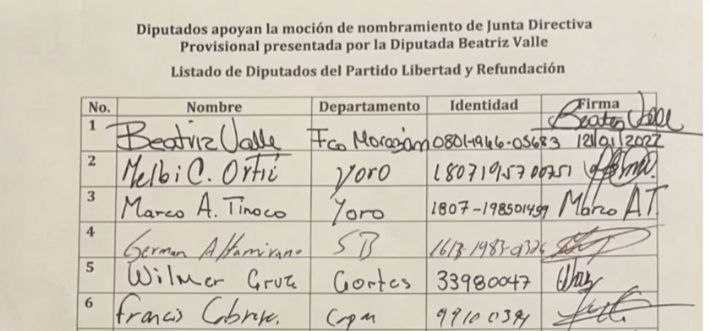 Diputados apoyan la moción de nombramiento de Junta Directiva
Provisional presentada por la Diputada Beatriz Valle
Listado de Diputados del Partido Libertad y Refundación
No. Nombre Departamento Identidad Firma
1 Beatriz Valle Fco Morazán 0801-1966-05683 Beatriz Valle 121/01/2022
2 Melbi C. Ortiz Yoro
3 Marco A. Tinoco Yoro Marco A T.
4 German Altamirano SB
5 Wilmer Cruz Cortes 33980047
6 Francis Cabrera. Copan